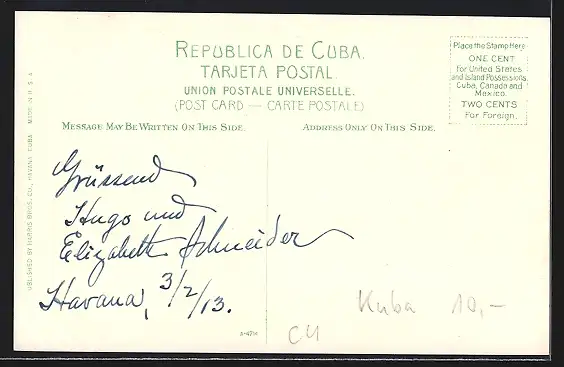 REPUBLICA DE CUBA.
TARJETA POSTAL.
UNION POSTALE UNIVERSELLE.
(POST CARD — CARTE POSTALE)
MESSAGE MAY BE WRITTEN ON THIS SIDE.
ADDRESS ONLY ON THIS SIDE.
Place the Stamp Here
ONE CENT
For United States
and Island Possessions,
Cuba, Canada and
Mexico.
TWO CENTS
For Foreign.
PUBLISHED BY HARRIS BROS. CO., HAVANA CUBA MADE IN U.S.A.
Grüssend
Hugo und
Elizabeth Schneider
Havana, 3/2/13.
Kuba 10,-
C4